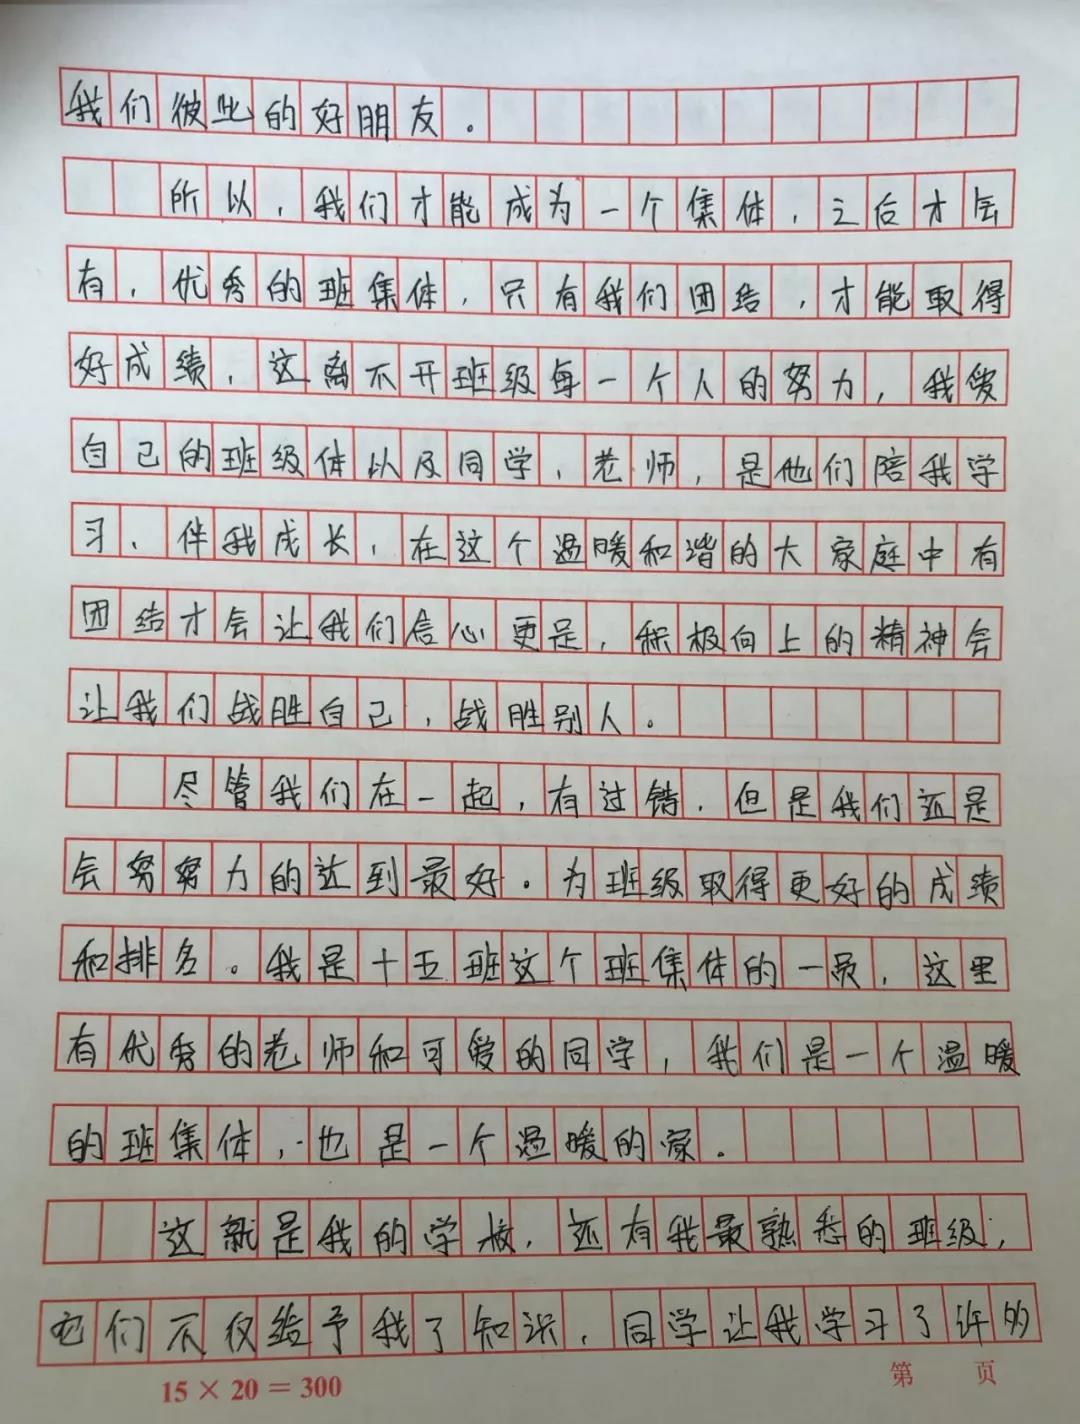 我们彼此的好朋友。
所以，我们才能成为一个集体，之后才会
有，优秀的班集体，只有我们团结，才能取得
好成绩，这离不开班级每一个人的努力，我爱
自己的班级体以及同学，老师，是他们陪我学
习、伴我成长，在这个温暖和谐的大家庭中有
团结才会让我们信心更足，积极向上的精神会
让我们战胜自己，战胜别人。
尽管我们在一起，有过错，但是我们还是
会努努力的达到最好。为班级取得更好的成绩
和排名。我是十五班这个班集体的一员，这里
有优秀的老师和可爱的同学，我们是一个温暖
的班集体，也是一个温暖的家。
这就是我的学校，还有我最熟悉的班级，
它们不仅给予我了知识，同学让我学习了许多
15 × 20 = 300
第 页